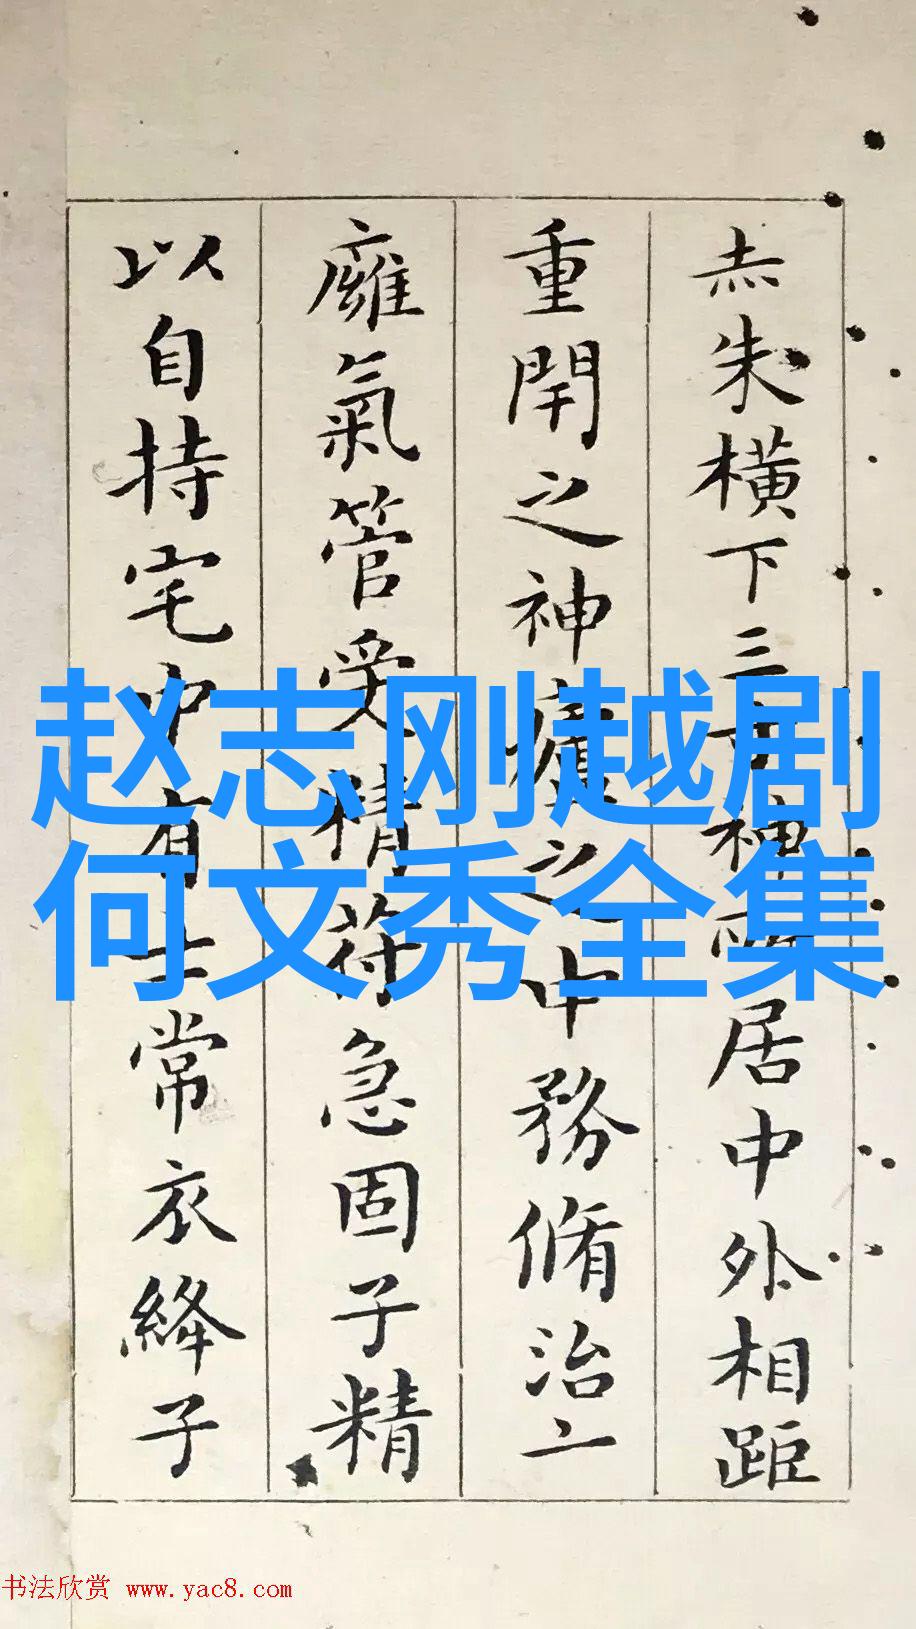 赤朱横下三寸神所居中外相距
重閇之神廬之中務脩治二
癰氣管受精符急固子精
以自持宅中有士常衣絳子
赵志刚越剧
何文秀全集
书法欣赏 www.yac8.com